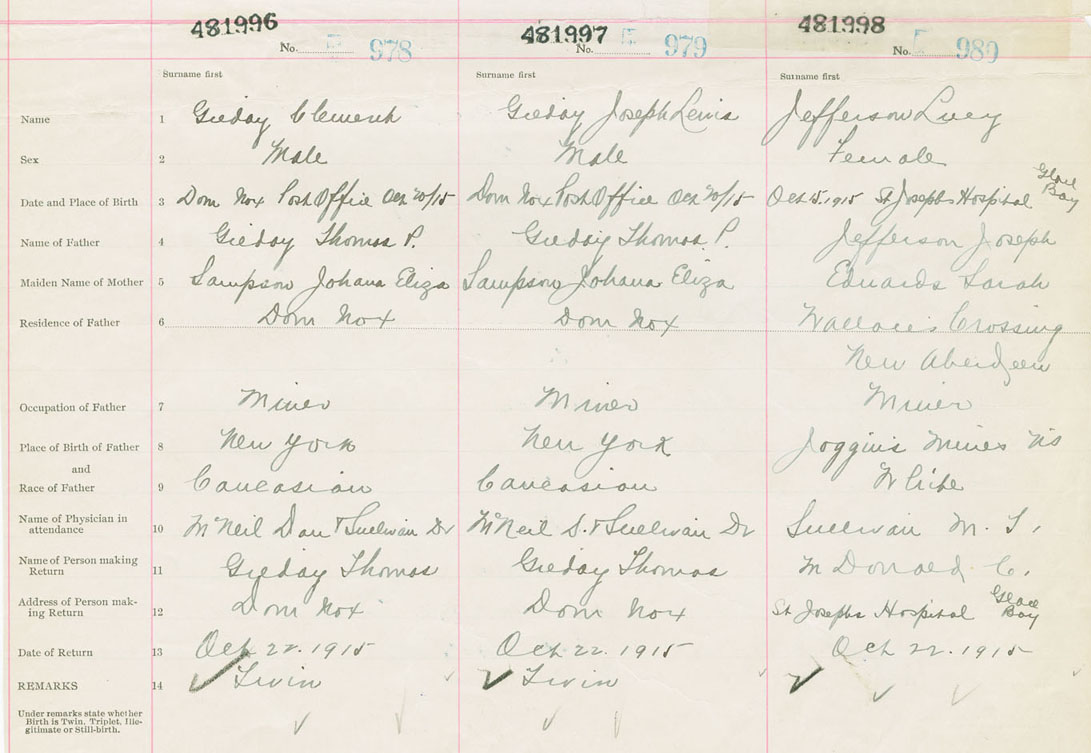 481996 481997 481998
No. 5 978 No. 5 979 No. 5 980
Surname first Surname first Surname first
Name 1 Gieday Clement Gieday Joseph Lewis Jefferson Lucy
Sex 2 Male Male Female
Date and Place of Birth 3 Dom No x Post Office Oct 20/15 Dom No x Post Office Oct 20/15 Oct 15. 1915 St Josephs Hospital Glace Bay
Name of Father 4 Gieday Thomas P. Gieday Thomas P. Jefferson Joseph
Maiden Name of Mother 5 Sampson Johana Eliza Sampson Johana Eliza Eduards Sarah
Residence of Father 6 Dom No x Dom No x Wallace's Crossing
New Aberdeen
Occupation of Father 7 Miner Miner Miner
Place of Birth of Father 8 New York New York Joggins Mines NS
and
Race of Father 9 Caucasian Caucasian White
Name of Physician in
attendance 10 McNeil Dan & Sullivan Dr McNeil D. & Sullivan Dr Sullivan M. T.
Name of Person making
Return 11 Gieday Thomas Gieday Thomas McDonald C.
Address of Person mak-
ing Return 12 Dom No x Dom No x St Josephs Hospital Glace Bay
Date of Return 13 Oct 22. 1915 Oct 22. 1915 Oct 22. 1915
REMARKS 14 Twin Twin
Under remarks state whether
Birth is Twin, Triplet, Ille-
gitimate or Still-birth.